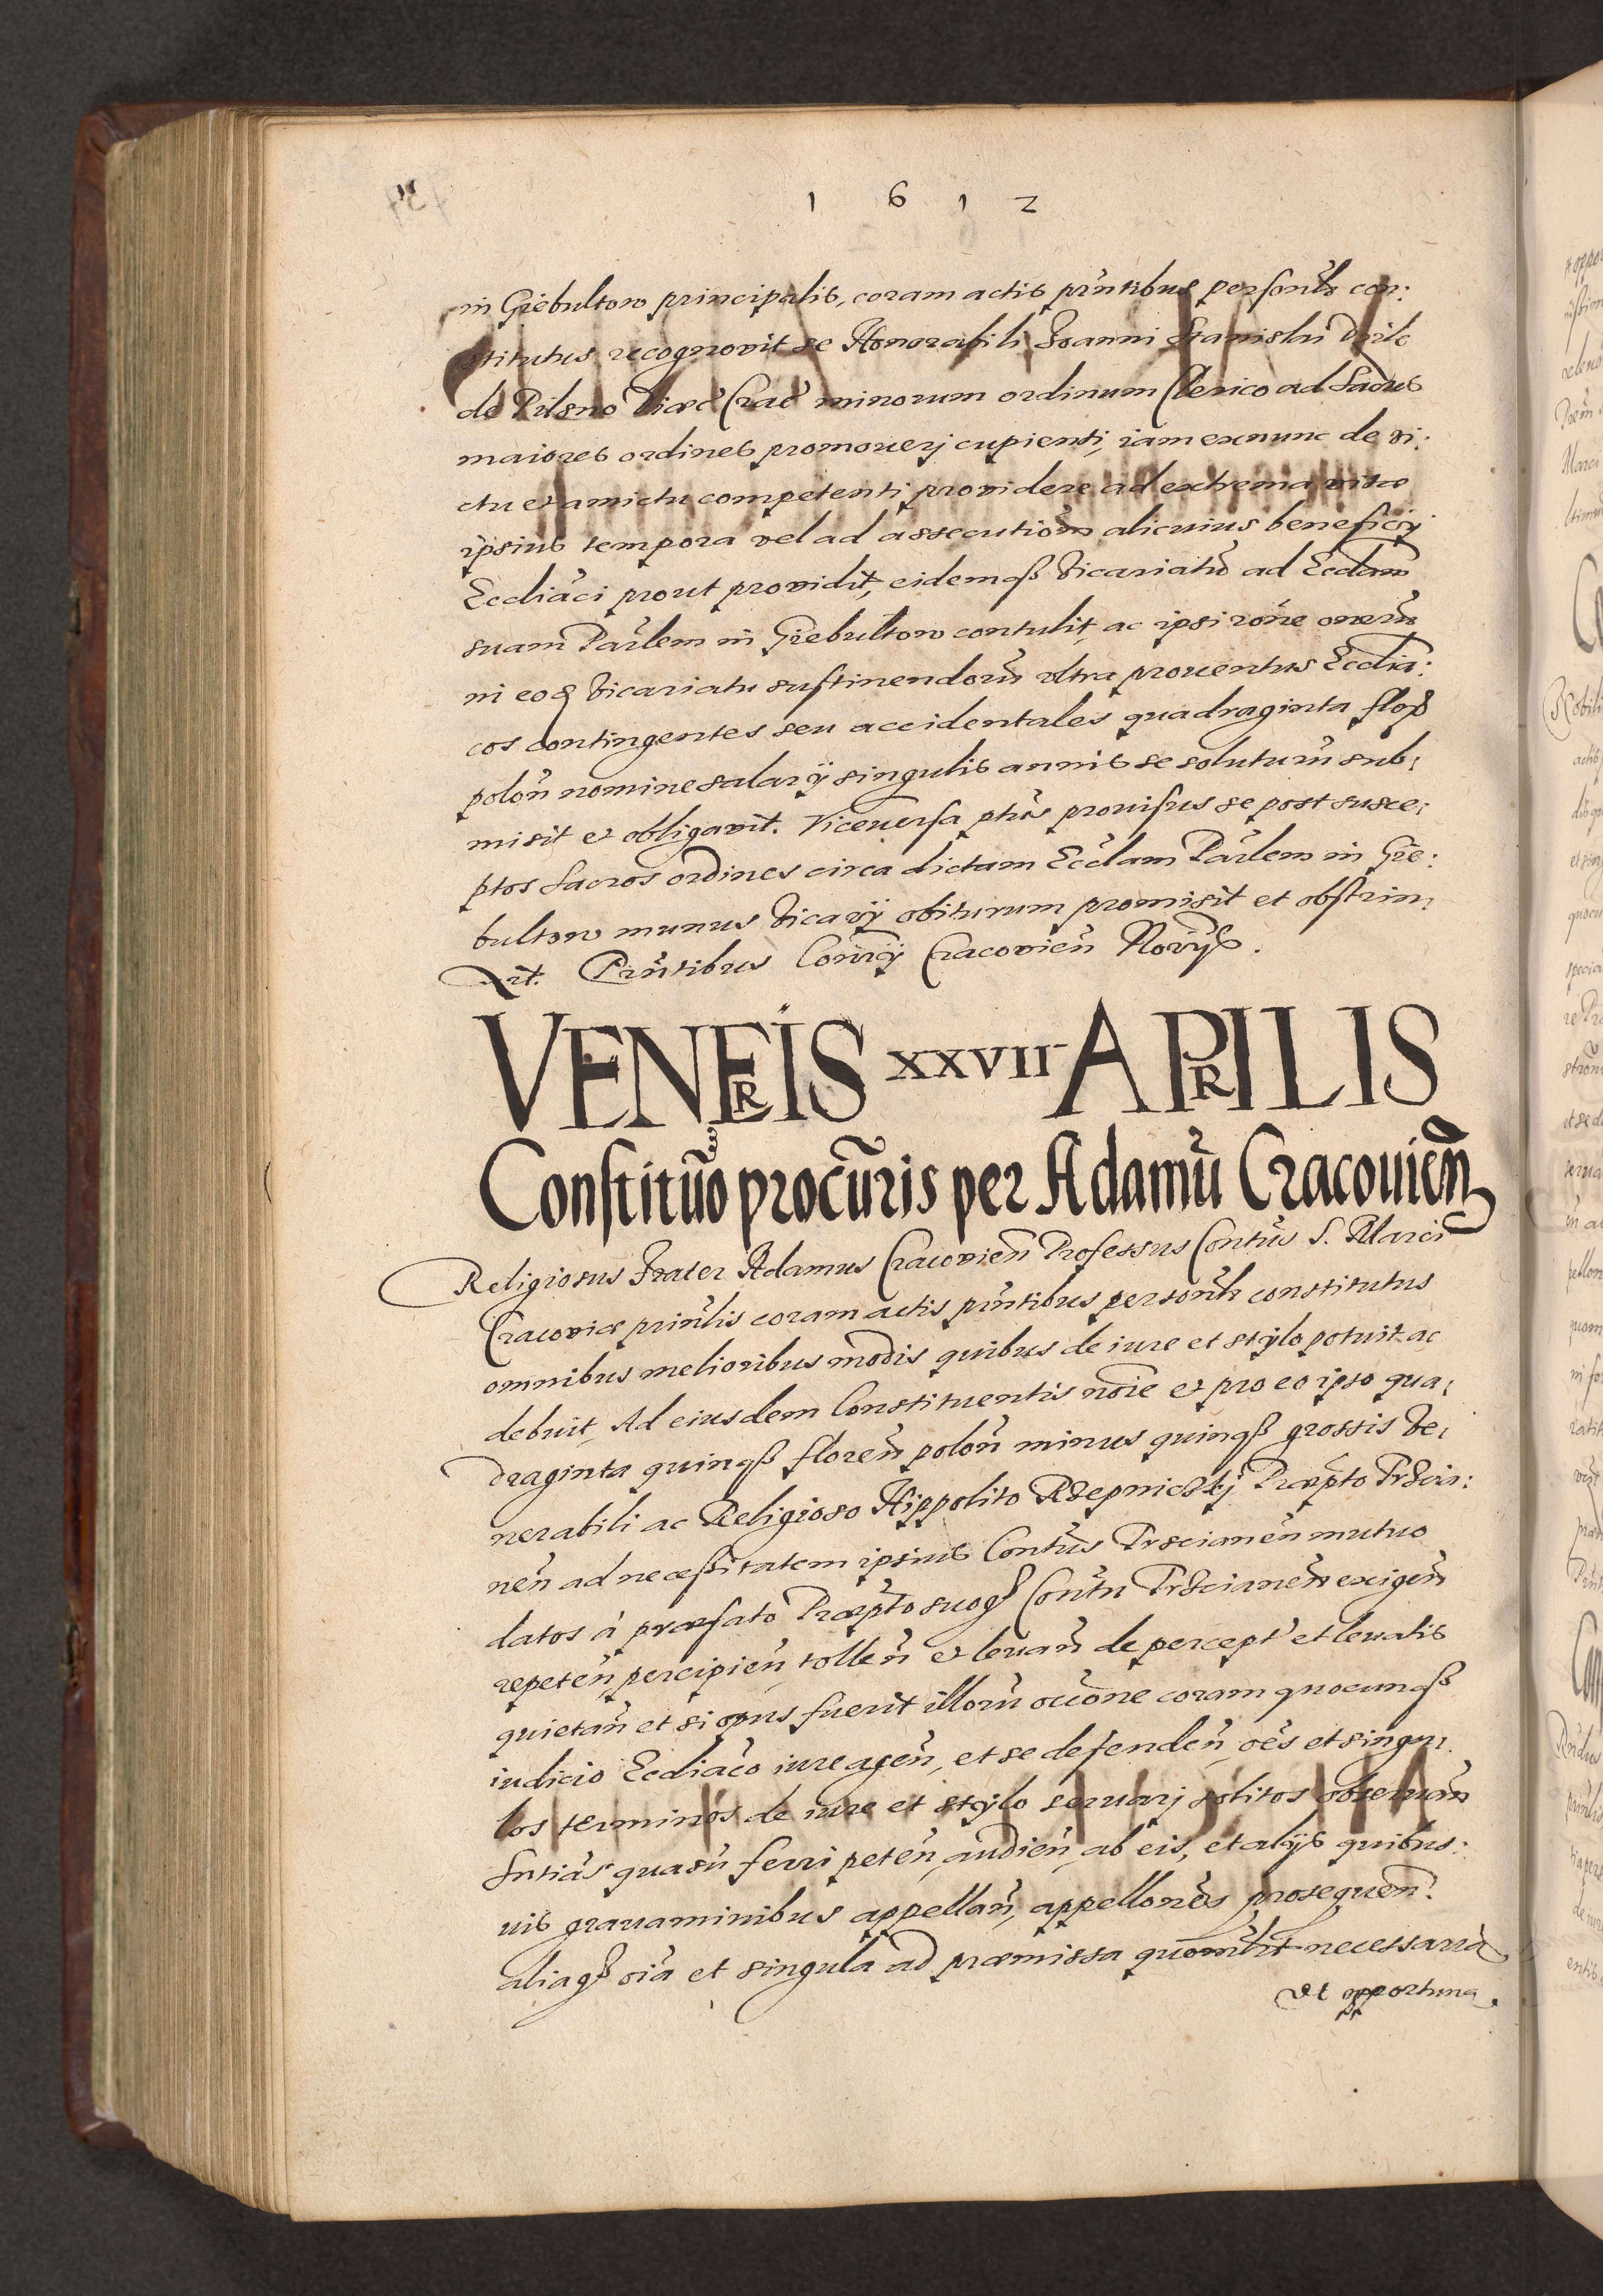 1 6 1 2
in Giebultow principalis, coram actis pñtibus personłr con:
stitutus recognovit se Honorabili Joanni Stanislai
de Pilsno Diœc̃ Crac̃ minorum ordinum Clerico ad Sacros
maiores ordines promoverj cupienti, iam exnunc de vi:
ctu et amictu competenti providere ad extrema vitæ
ipsius tempora vel ad assecutiõm alicuius beneficij
Eccliãci prout providit, eidemqꝫ Vicariatũ ad Ecclam
suam Parlem in Giebultow contulit, ac ipsi rõne onerũ
in eoꝗ Vicariatu sustinendorũ vltra prouentus Ecclia:
cos contingentes seu accidentales quadraginta floꝝ
polon̄ nomine salarÿ singulis annis se soluturũ sub:
misit et obligavit. Viceuersa pttus prouisus se post susce:
ptos Sacros ordines circa dictam Ecclam Parlem in Gie:
bultow munus Vicarÿ obiturum promisit et obstrin:
xit. Pñtibus Consrÿ Cracovien̄ Novÿs.
VENERIS XXVII APRILIS
Constituo procuris per Adamũ Cracouien̄
Religiosus Frater Adamus Cracovien̄ Professus Contũs S. Marci
Cracoviæ prinłis coram actis pñtibus personłr constitutus
omnibus melioribus modis quibus de iure et stylo potuit ac
debuit, Ad eiusdem Constituentis noĩe et pro eo ipso qua:
draginta quinqꝫ floren̄ polon̄ minus quinqꝫ grossis Ve:
nerabili ac Religioso Hippolito Rzepnickj Præpto Trzcia:
nen̄ ad necessitatem ipsius Contũs Trzcianen̄ mutuo
datos à præfato Præpto suoqꝫ Contũ Trzcianen̄ exigen̄
repeten̄, percipien̄, tollen̄ et levan̄ de percept̃ et levatis
quietan̄ et si opus fuerit illorũ occõne coram quocunqꝫ
iudicio Eccliãco iure agen̄, et se defenden̄, oẽs et singu:
los terminos de iure et stylo seruarj solitos obseruan̄
Sntias quasũ ferri peten̄, audien̄, ab eis, et alijs quibus:
vis gravaminibus appellan̄, appellones prosequen̄:
aliaqꝫ oĩa et singula ad præmissa quomłt necessaria
et opportuna.